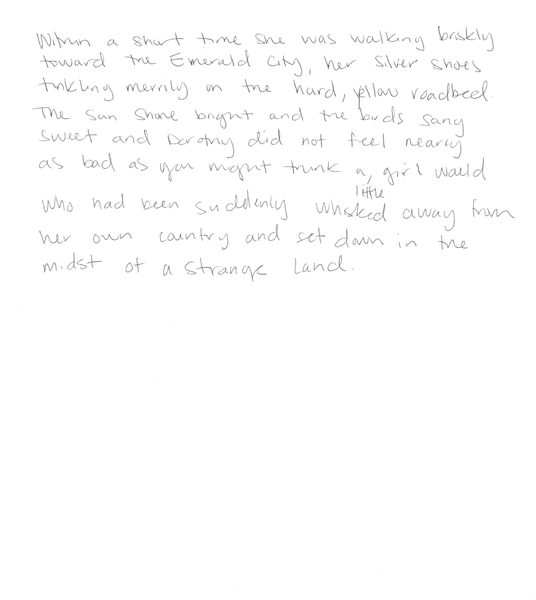 Within a short time she was walking briskly
toward the Emerald City, her Silver Shoes
tinkling merrily on the hard, yellow roadbed.
The sun shone bright and the birds sang
sweet and Dorothy did not feel nearly
as bad as you might think a little girl would
who had been suddenly whisked away from
her own country and set down in the
midst of a strange land.